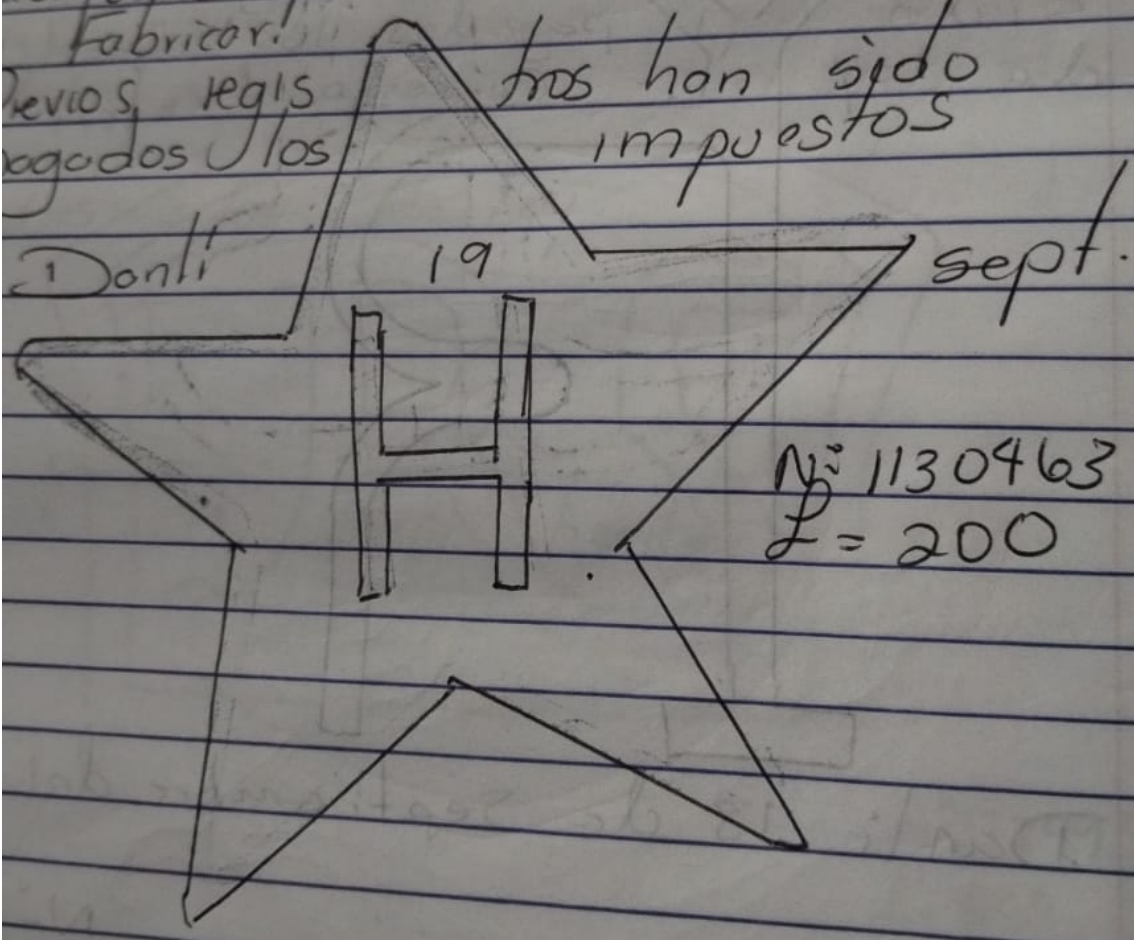 Fabricar!
Previos regis tros han sido
pagados los impuestos
Danlí 19 sept.
H
Nº 1130463
L = 200